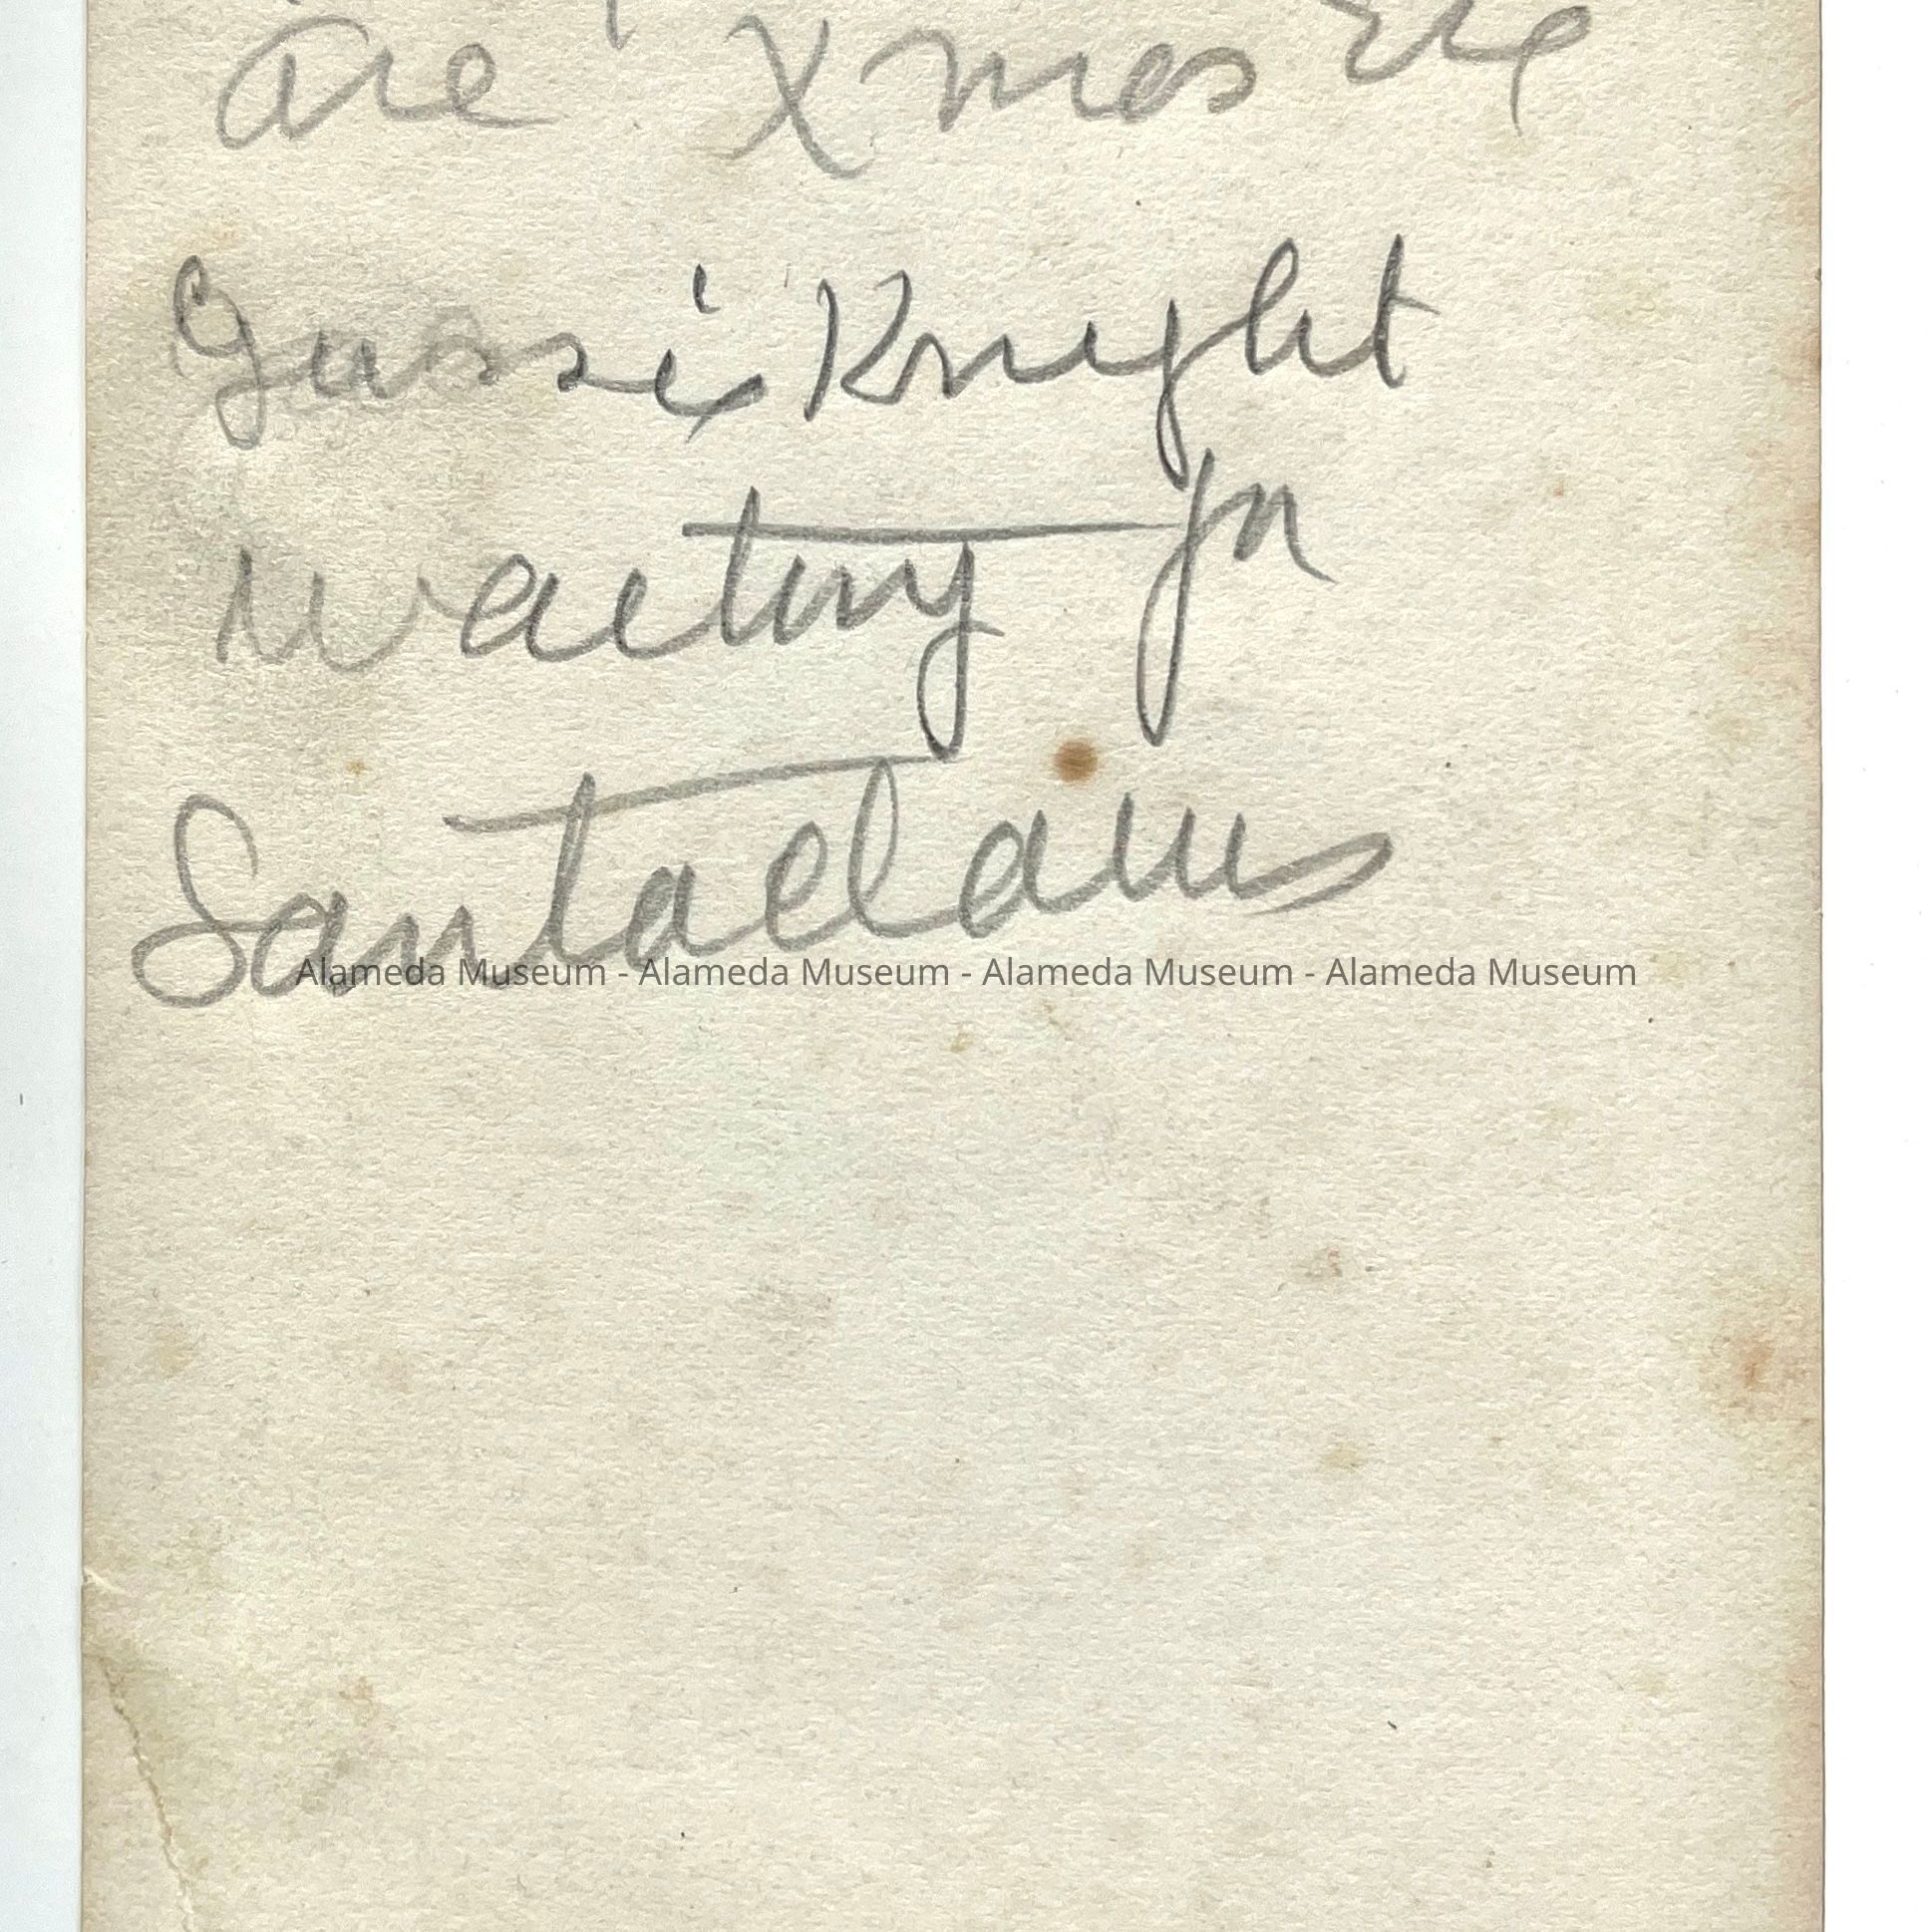 are Xmas Eve
Gussie Knight
waiting for
Santa Claus
Alameda Museum - Alameda Museum - Alameda Museum - Alameda Museum